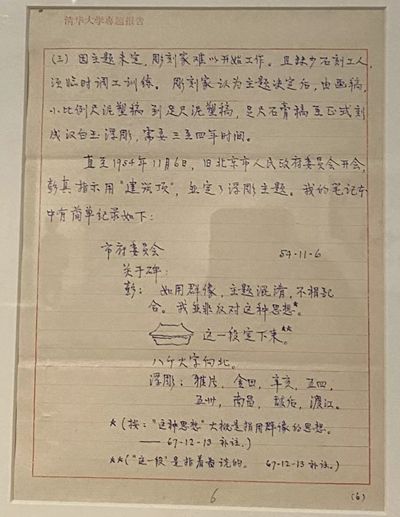 清华大学专题报告
(三) 因主题未定,雕刻家难以开始工作。且缺少石刻工人,
须临时调工训练。雕刻家认为主题决定后,由画稿,
小比例尺泥塑稿到足尺泥塑稿,足尺石膏稿至正式刻
成汉白玉浮雕,需要三至四年时间。
直至1954年11月6日,旧北京市人民政府委员会开会,
彭真指示用“建筑顶”,并定了浮雕主题。我的笔记本
中有简单记录如下:
市府委员会 54-11-6
关于碑:
彭: 如用群像,主题混淆,不相配
合。我并非反对这种思想*。
这一段定下来**。
八个大字向北。
浮雕: 鸦片,金田,辛亥,五四,
五卅,南昌,敌后,渡江。
*(按:“这种思想”大概是指用群像的思想。
—— 67-12-13 补注。)
**(“这一段”是指着说的。 67-12-13 补注。)
6
(6)